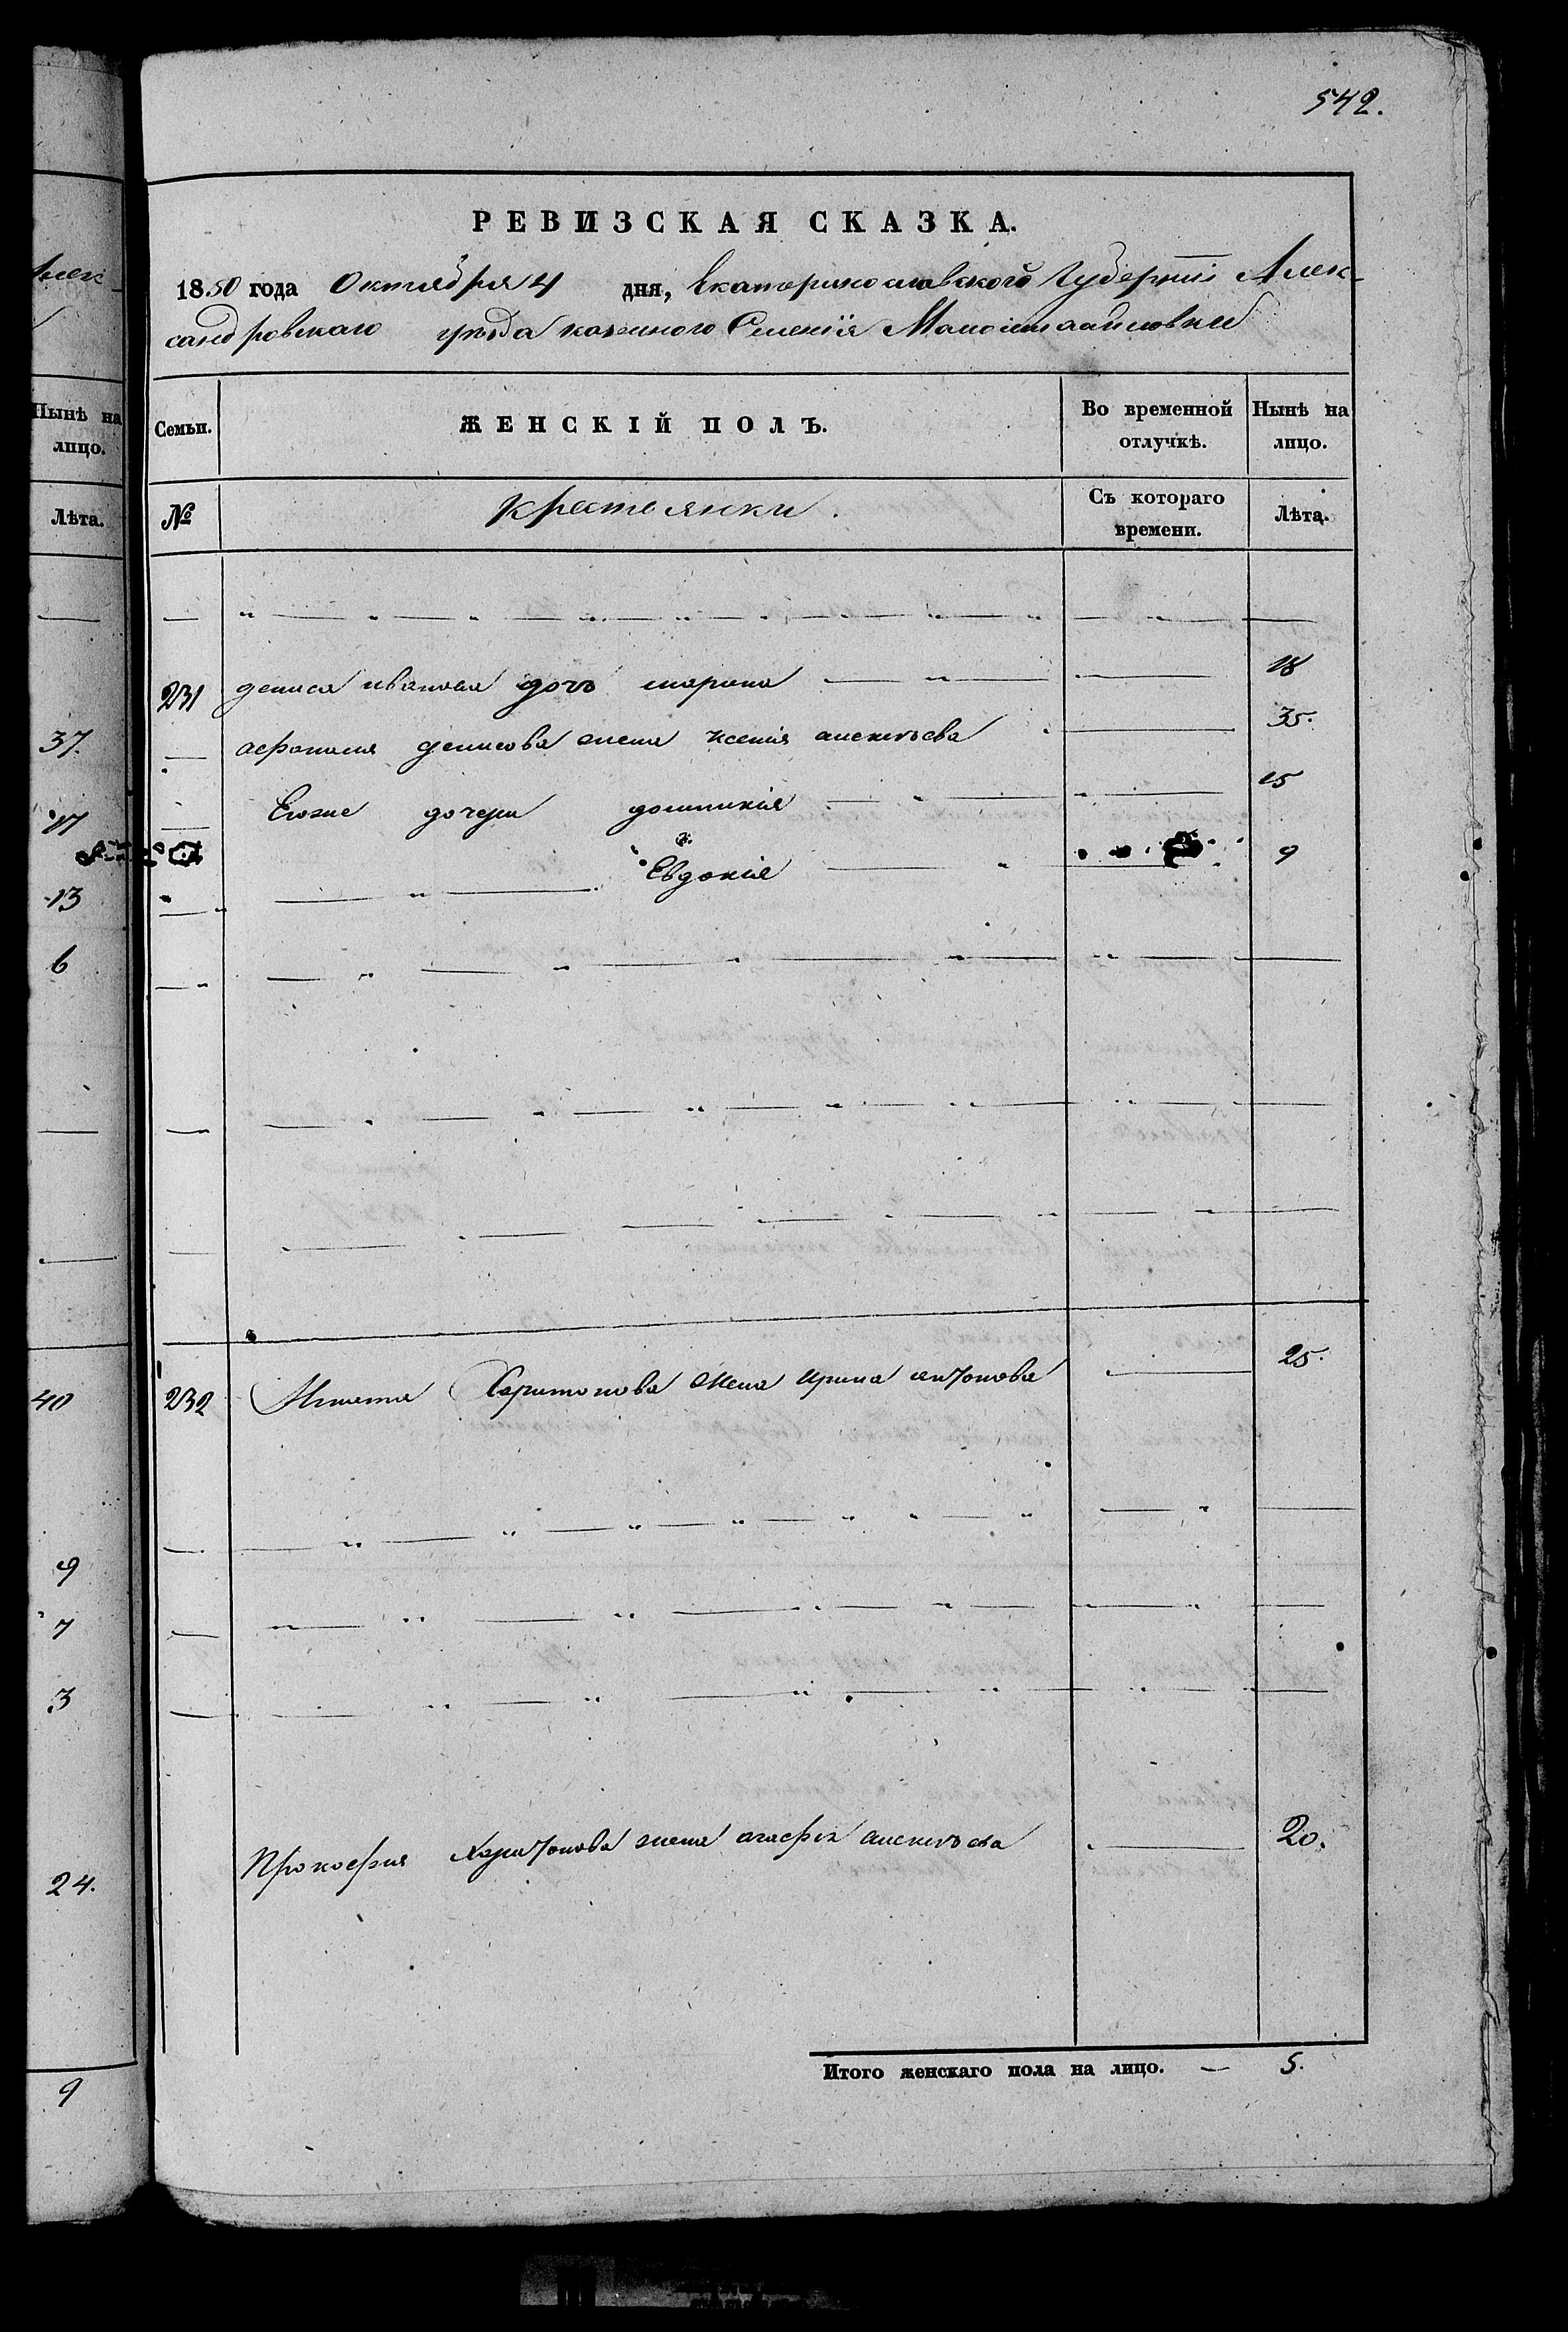 542.
РЕВИЗСКАЯ СКАЗКА.
1850 года Октября 4 дня, Екатеринославской Губерніи Алек-
сандровскаго уѣзда казенного Селенія Маломихайловки
Семьи.
ЖЕНСКІЙ ПОЛЪ.
Во временной отлучкѣ.
Нынѣ на лицо.
№
крестьянки.
Съ котораго времени.
Лѣта.
231 дениса иванова дочь марина 18
афанасия денисова жена ксенія алексѣева 35.
Егоже дочери домникія 15
Евдокія 9
232 Никиты Харитонова жена ирина антонова 25.
Прокофия харитонова жена агафія алексѣева 20.
Итого женскаго пола на лицо. — 5.
Алек
Нынѣ на
лицо.
Лѣта.
37.
17
13
6
40
9
7
3
24.
9